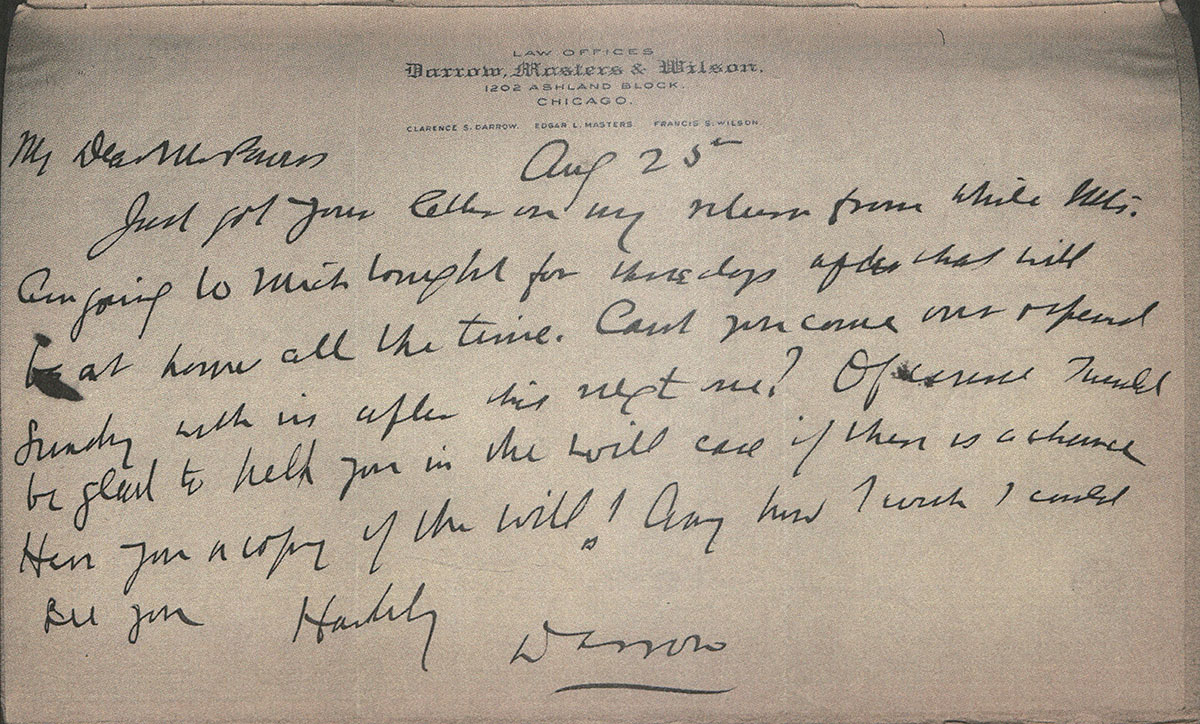 LAW OFFICES
Darrow, Masters & Wilson.
1202 ASHLAND BLOCK.
CHICAGO.
CLARENCE S. DARROW. EDGAR L. MASTERS. FRANCIS S. WILSON.
Aug 25th
My Dear Mr
Just got your letter on my return from White Mts.
Am going to Mich tonight for three days after that will
be at home all the time. Cant you come over & spend
Sunday with us after this next one? Of course I would
be glad to help you in the will case if there is a chance
Have you a copy of the will? Any how I wish I could
see you Darrow